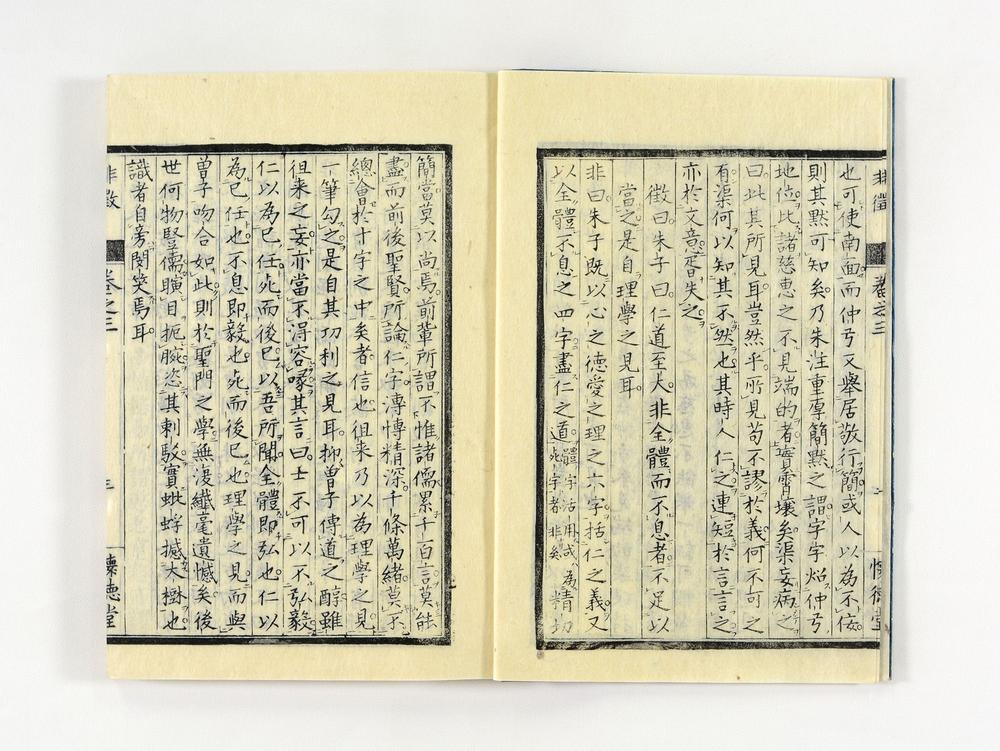 非徴 卷之三 懷德堂
也可使南面而仲弓又舉居敬行簡或人以為不佞
則其默可知矣乃朱注重厚簡默之謂字字炤仲弓
地位比諸慈惠之不見端的者霄壤矣渠妄病之
曰此其所見耳豈然乎所見苟不謬於義何不可之
有渠何以知其不然也其時人仁之連短於言言之
亦於文意胥失之
徵曰朱子曰仁道至大非全體而不息者不足以
當之是自理學之見耳
非曰朱子既以心之德愛之理之六字括仁之義又
以全體不息之四字盡仁之道體字活用或為精切此字者非矣
簡當莫以尚焉前輩所謂不惟諸儒累千百言莫能
盡而前後聖賢所論仁字溥愽精深千條萬緒莫不
總會於十字之中矣者信也徂來乃以為理學之見
一筆勾之是自其功利之見耳抑曾子傳道之醇雖
徂来之妄亦當不得容喙其言曰士不可以不弘毅
仁以為已任死而後已以吾所聞全體即弘也仁以
為已任也不息即毅也死而後已也理學之見而與
曾子吻合如此則於聖門之學無復纖毫遺憾矣後
世何物豎儒曠目扼腕恣其刺駁實蚍蜉撼大樹也
識者自旁閔笑焉耳
非徴 卷之三 三 懷德堂